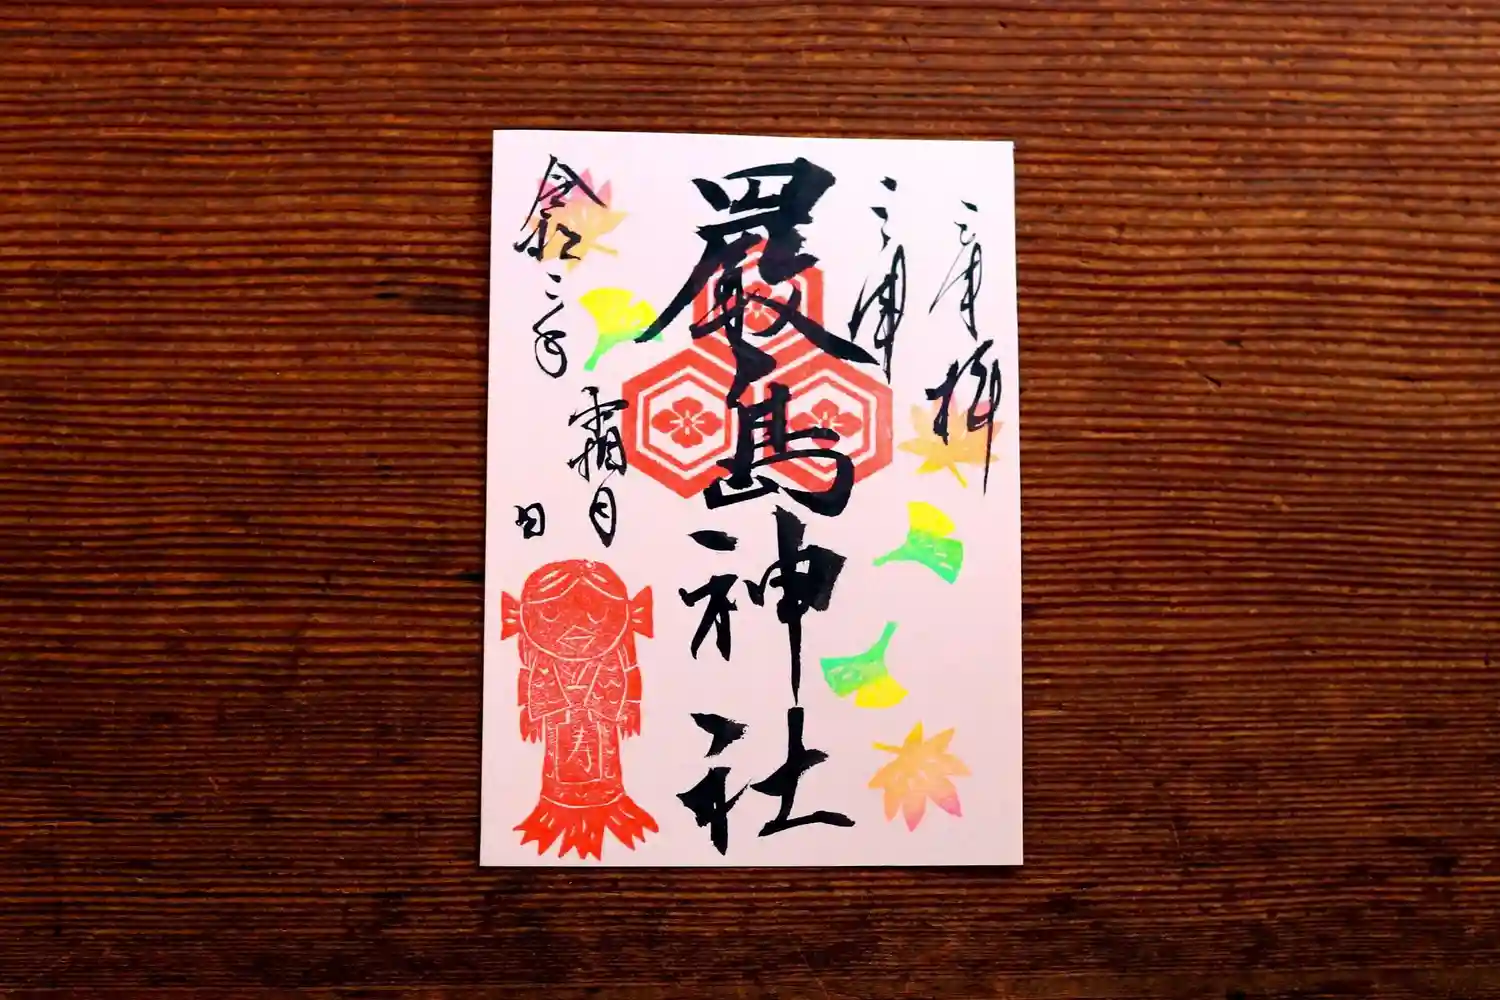 奉拝
三津
嚴島神社
令和二年
霜月
日
寿